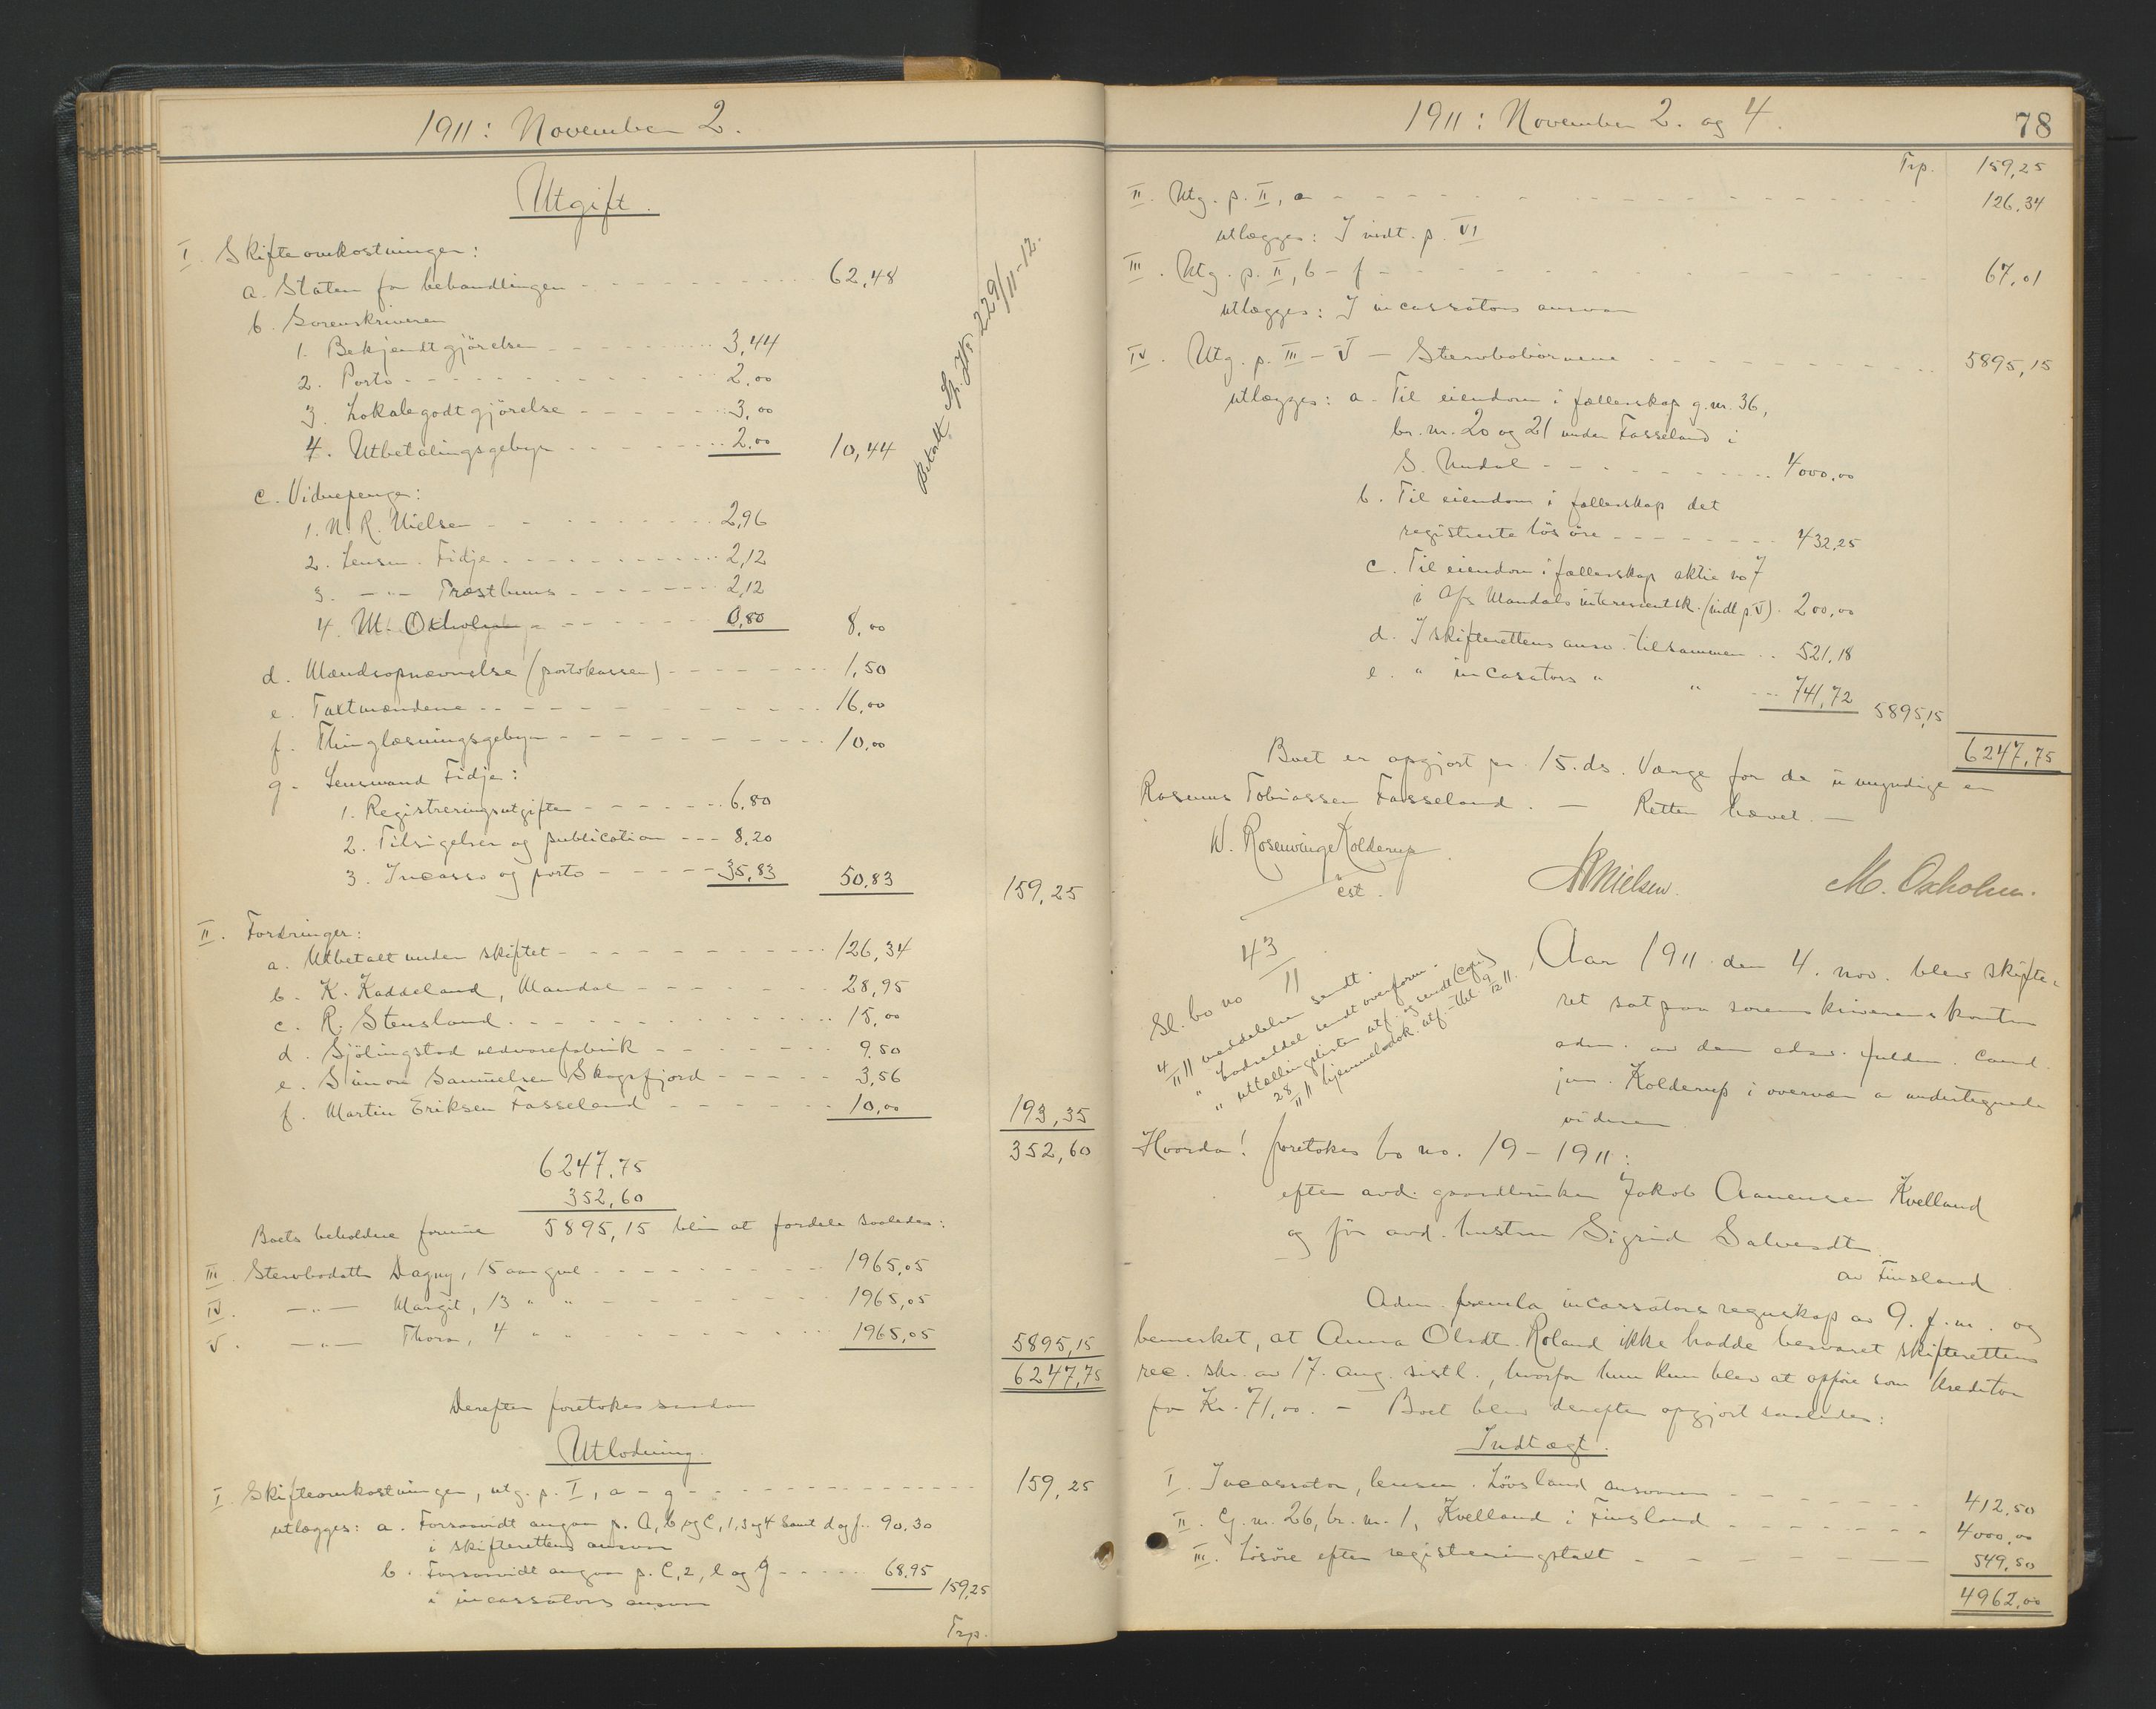 1911: November 2.
Utgift.
I. Skifteomkostninger:
a. Staten for behandlingen 62,48
b. Sorenskriveren
1. Bekjendtgjörelse 3,44
2. Porto 2,00
3. Lokalegodtgjörelse 3,00
4. Utbetalingsgebyr 2,00 10,44
Betalt Sp. 229/11-12.
c. Vidnepenge:
1. N. R. Nielsen 2,96
2. Lensm. Fidje 2,12
3. —"— Træsthuus 2,12
4. M. Oxholm 0,80 8,00
d. Mændsopnævnelse (portokassen) 1,50
e. Taxtmændene 16,00
f. Thinglæsningsgebyr 10,00
g. Lensmand Fidje:
1. Registreringsutgifter 6,80
2. Tilsigelser og publication 8,20
3. Incasso og porto 35,83 50,83 159,25
II. Fordringer:
a. Utbetalt under skiftet 126,34
b. K. Kaddeland, Mandal 28,95
c. R. Stensland 15,00
d. Sjölingstad uldvarefabrik 9,50
e. Simon Samuelsen Skogsfjord 3,56
f. Martin Eriksen Fasseland 10,00 193,35
352,60
6247,75
352,60
Boets beholdne formue 5895,15 blir at fordele saaledes:
III. Stervbodatter Dagny, 15 aar gml. 1965,05
IV. —"— Margit, 13 " " 1965,05
V. —"— Thora, 4 " " 1965,05 5895,15
6247,75
Derefter foretokes saadan
Utlodning.
I. Skifteomkostninger, utg. p. I, a - g 159,25
utlægges: a. Forsaavidt angaar p. a, b og c, 1, 3 og 4 samt d og f. 90,30
i skifterettens ansvar
b. Forsaavidt angaar p. c, 2, e og g 68,95 159,25
i incassators ansvar
Trp.
1911: November 2. og 4. 78
Trp. 159,25
II. Utg. p. II, a 126,34
utlægges: I indt. p. VI
III. Utg. p. II, b - f 67,01
utlægges: I incassators ansvar
IV. Utg. p. III - V - Stervbobörnene 5895,15
utlægges: a. Til eiendom i fællesskap g.nr. 36,
br. nr. 20 og 21 under Fasseland i
S. Undal 4000,00
b. Til eiendom i fællesskap det
registrerte lösöre 432,25
c. Til eiendom i fællesskap aktie no 7
i A/s Mandals interessentsk. (indt p. V). 200,00
d. I skifterettens ansv. tilsammen 521,18
e. " incasators " " 741,72 5895,15
6247,75
Boet er opgjort pr. 15. ds. Værge for de umyndige er
Rasmus Tobiassen Fasseland. — Retten hævet. —
W. Rosenvinge Kolderup
cst.
NRNielsen. M. Oxholm.
43
11
Sl. bo no
4/11 11 meddelelse sendt.
" bodseddel sendt overform.
" uttællingslisten utf. og sendt (copi)
28/11 11 hjemmelsdok. utf. - tbl. 9/12 11.
Aar 1911 den 4. nov. blev skifte-
ret sat paa sorenskriverens kontor
adm. av den edsv. fuldm. cand.
jur. Kolderup i overvær av undertegnede
vidner
Hvorda! foretokes bo no. 19 - 1911:
efter avd. gaardbruker Jakob Aanensen Kvelland
og för avd. hustru Sigrid Salvesdtr.
av Finsland
Adm. fremla incassators regnskap av 9. f.m. og
bemerket, at Anna Olsdt. Roland ikke hadde besvaret skifterettens
rec. skr. av 17. aug. sistl., hvorfor hun kun blev at opföre som kreditor
for Kr. 71,00. - Boet blev derefter opgjort saaledes:
Indtægt.
I. Incassator, lensm. Lövsland ansvarer 412,50
II. G. nr. 26, br. nr. 1, Kvelland i Finsland 4000,00
III. Lösöre efter registreringstaxt 549,50
4962,00